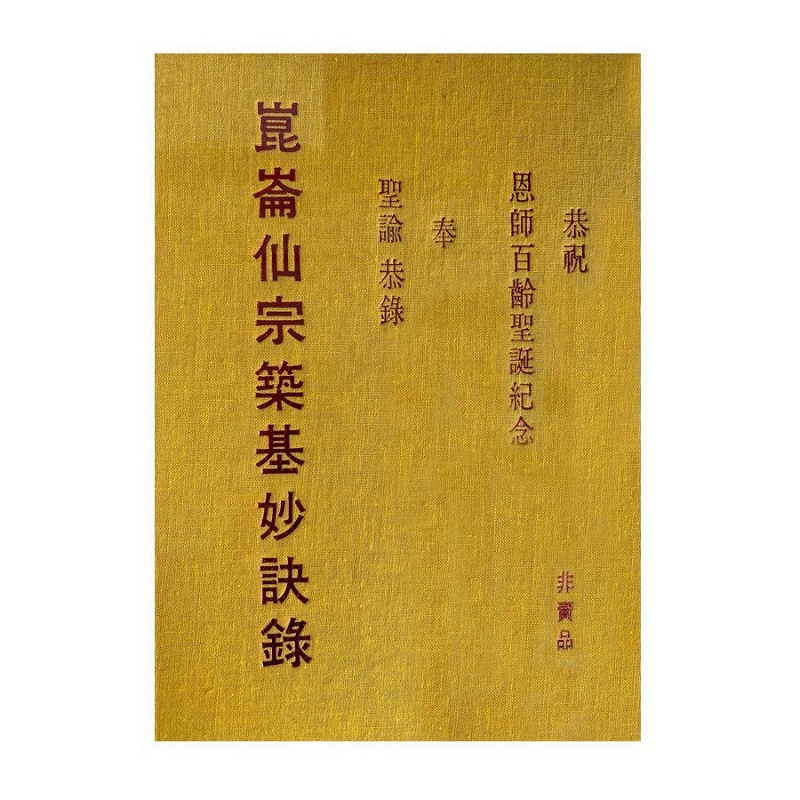 恭祝
恩師百齡聖誕紀念
奉
聖諭 恭錄
崑崙仙宗築基妙訣錄
非賣品